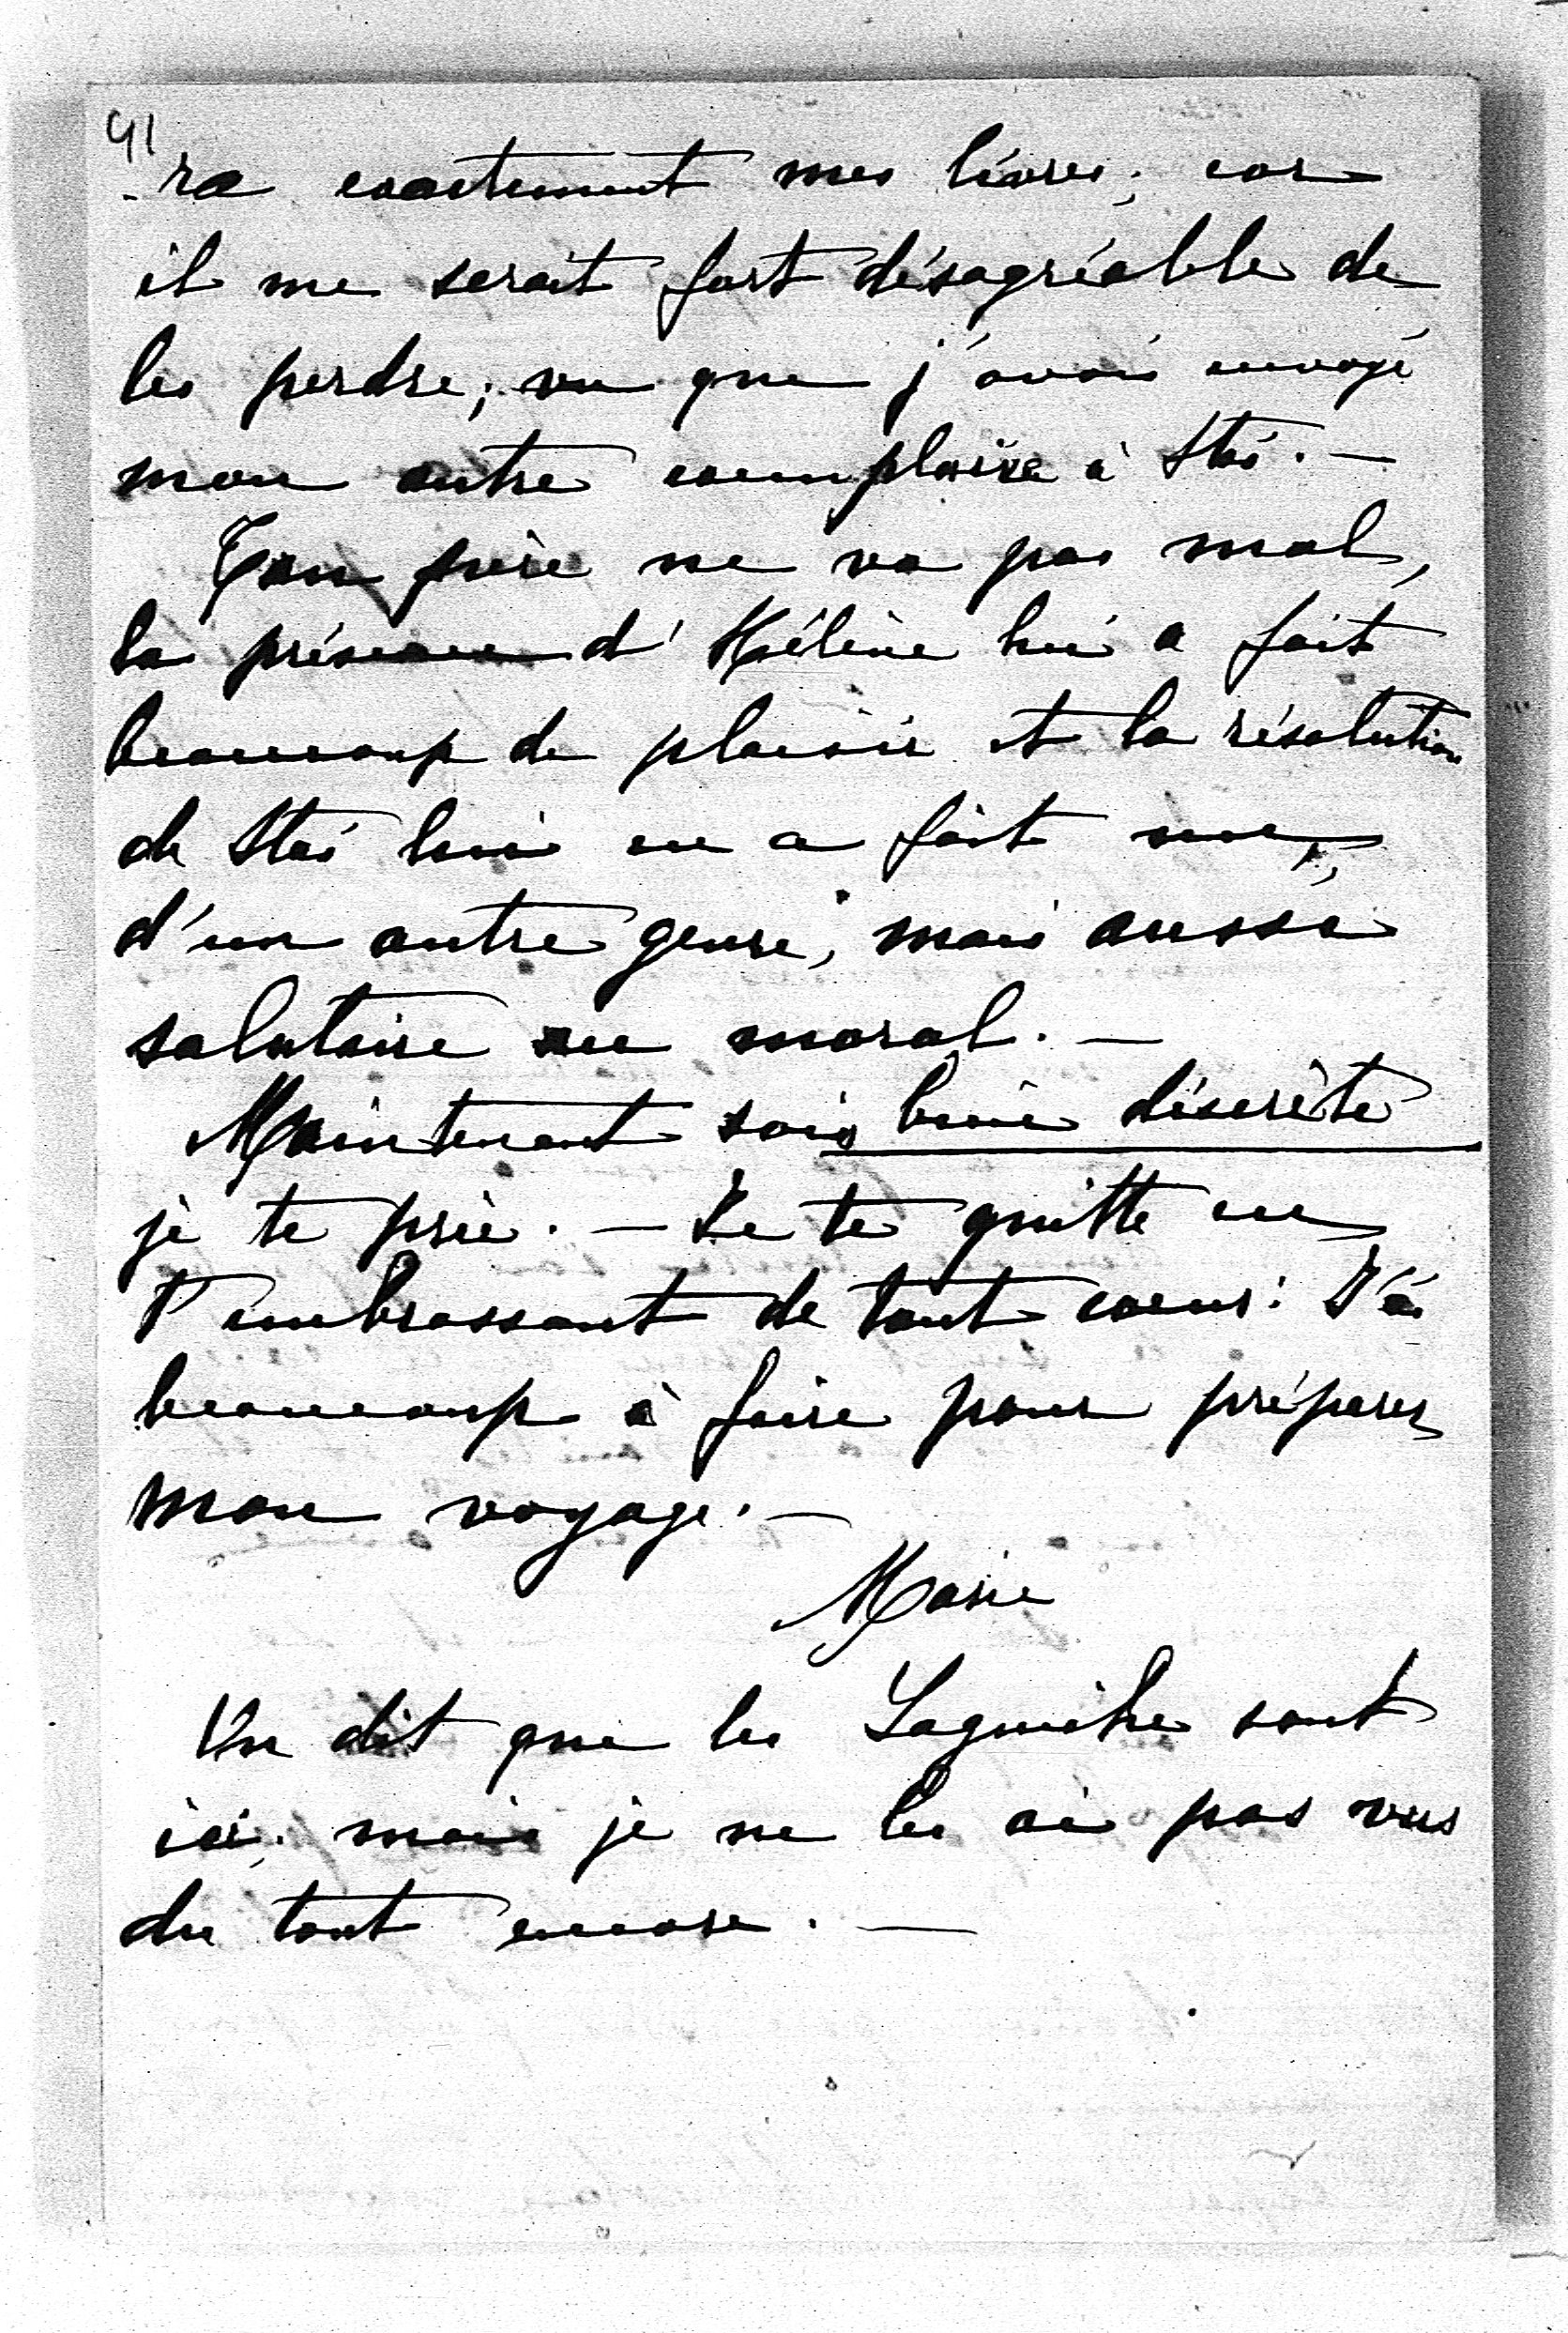 41
-ra exactement mes livres; car
il me serait fort désagréable de
les perdre; vu que j'avais envoyé
mon autre exemplaire à Stas. —
Ton père ne va pas mal,
la présence d'Hélène lui a fait
beaucoup de plaisir et la résolution
de Stas lui en a fait une,
d'un autre genre, mais aussi
salutaire au moral. —
Maintenant sois bien discrète
je te prie. — Je te quitte en
t'embrassant de tout coeur. J'ai
beaucoup à faire pour préparer
mon voyage. —
Marie
On dit que les sont
ici, mais je ne les ai pas vus
du tout encore. —